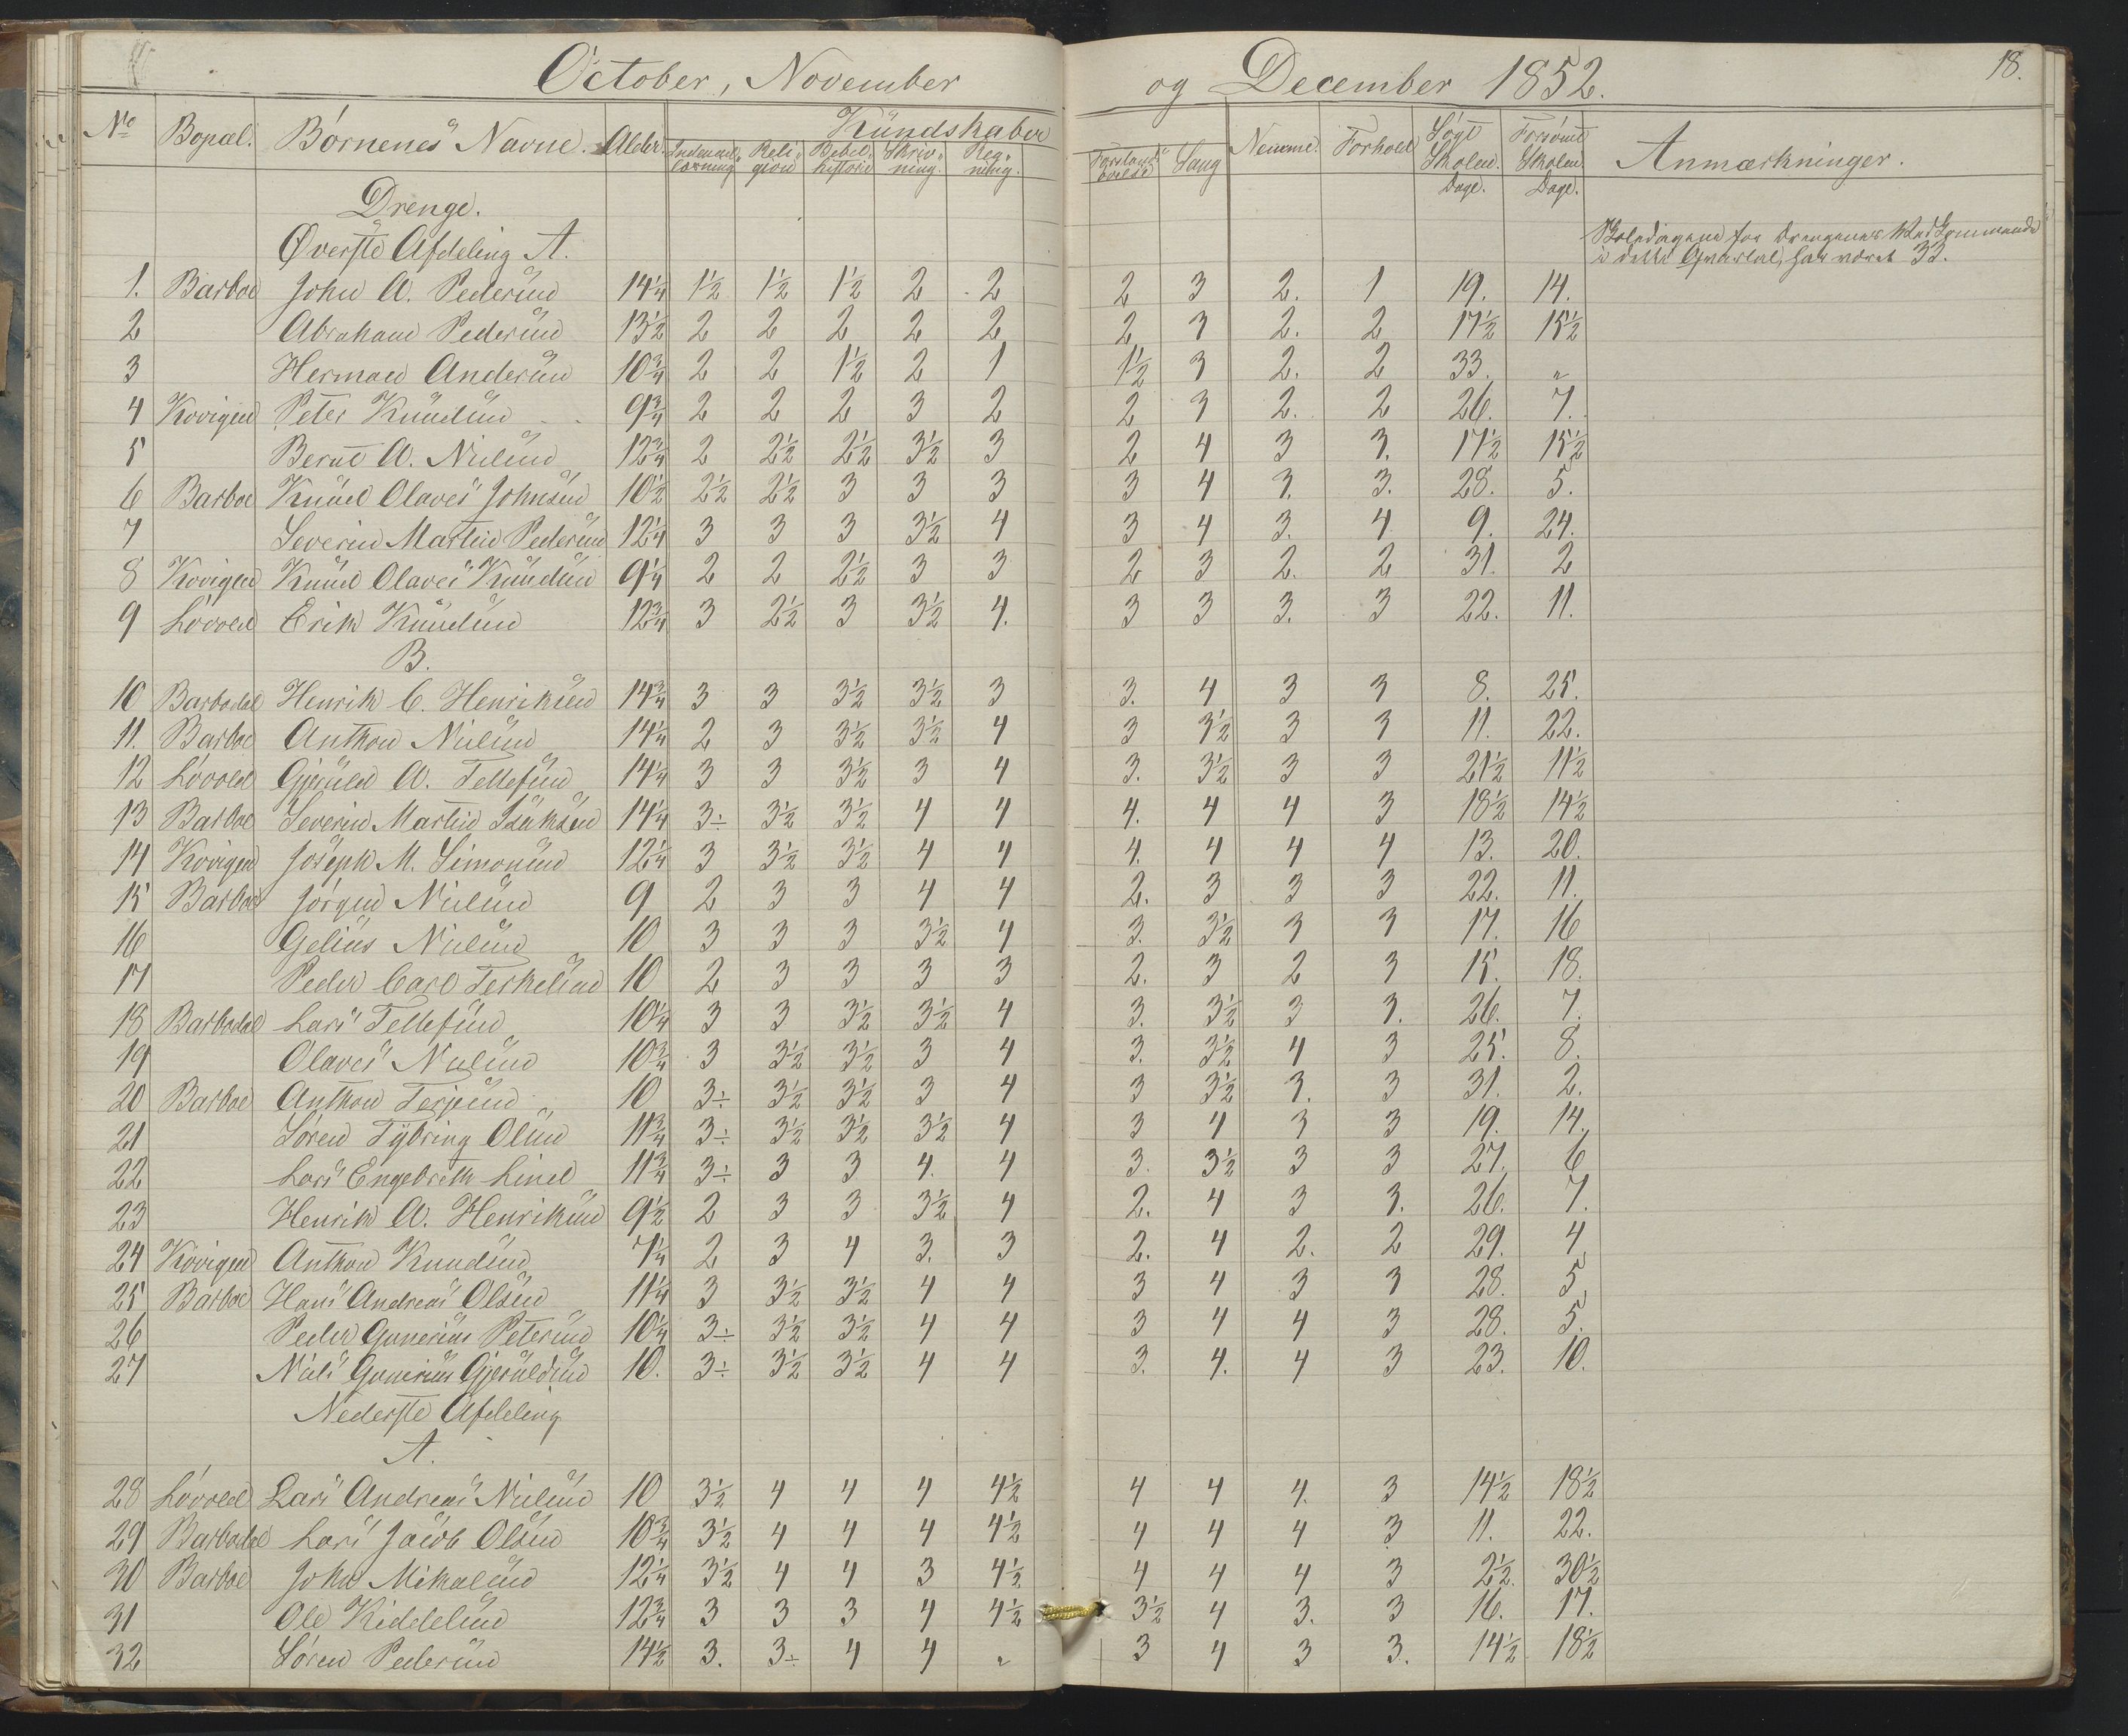 October, November og December 1852. 18.
No Bopæl. Børnenes Navne. Alder. Kundskaber Nemme. Forhold Søgt Skolen Dage. Forsømt Skolen Dage. Anmærkninger.
Indenadlæsning Religion Bibelhistorie Skrivning. Regning. Sang
Drenge.
Øverste Afdeling A.
Skoledagene for Drengenes Vedkommende
i dette Qvartal, har været 33.
1. Barboe John A. Pedersen 14 1/4 1 1/2 1 1/2 1 1/2 2 2 2 3 2. 1 19. 14.
2 Abraham Pedersen 13 1/2 2 2 2 2 2 2 3 2. 2 17 1/2 15 1/2
3 Herman Andersen 10 3/4 2 2 1 1/2 2 1 1 1/2 3 2. 2 33. "
4 Kovigen Peter Knudsen 9 3/4 2 2 2 3 2 2 3 2. 2 26. 7.
5 Bernt A. Nielsen 12 3/4 2 2 1/2 2 1/2 3 1/2 3 2 4 3 3. 17 1/2 15 1/2
6 Barboe Knud Olaves Johnsen 10 1/2 2 1/2 2 1/2 3 3 3 3 4 3. 3. 28. 5.
7 Severin Martin Pedersen 12 1/4 3 3 3 3 1/2 4 3 4 3. 4 9. 24.
8 Kovigen Knud Olaves Knudsen 9 1/4 2 2 2 1/2 3 3 2 3 2. 2 31. 2
9 Løvold Erik Knudsen 12 3/4 3 2 1/2 3 3 1/2 4. 3 3 3. 3 22. 11.
B.
10 Barbodal Henrik C. Henriksen 14 3/4 3 3 3 1/2 3 1/2 3 3. 4 3 3 8. 25.
11. Barboe Anthon Nielsen 14 1/4 2 3 3 1/2 3 1/2 4 3 3 1/2 3 3 11. 22.
12 Løvold Gjeruld A. Tellefsen 14 1/4 3 3 3 1/2 3 4 3. 3 1/2 3 3 21 1/2 11 1/2
13 Barboe Severin Martin Isaksen 14 1/4 3÷ 3 1/2 3 1/2 4 4 4. 4 4 3 18 1/2 14 1/2
14 Kovigen Joseph M. Simonsen 12 1/4 3 3 1/2 3 1/2 4 4 4. 4 4 4 13. 20.
15 Barboe Jørgen Nielsen 9 2 3 3 4 4 2. 3 3 3 22. 11.
16 Gelius Nielsen 10 3 3 3 3 1/2 4 3. 3 1/2 3 3 17. 16
17 Peder Carl Terkelsen 10 2 3 3 3 3 2. 3 2 3 15. 18.
18 Barbodal Lars Tellefsen 10 1/4 3 3 3 1/2 3 1/2 4 3. 3 1/2 3 3. 26. 7.
19 Olaves Nielsen 10 3/4 3 3 1/2 3 1/2 3 4 3. 3 1/2 4 3 25. 8.
20 Barboe Anthon Terjesen 10 3÷ 3 1/2 3 1/2 3 4 3 3 1/2 3. 3 31. 2.
21 Søren Tybring Olsen 11 3/4 3÷ 3 1/2 3 1/2 3 1/2 4 3 4 3 3 19. 14.
22 Lars Engebreth Lind 11 3/4 3÷ 3 3 4. 4 3. 3 1/2 3 3 27. 6
23 Henrik A. Henriksen 9 1/2 2 3 3 3 1/2 4 2. 4 3 3. 26. 7.
24 Kovigen Anthon Knudsen 7 1/4 2 3 4 3. 3 2. 4 2. 2 29. 4
25 Barboe Hans Andreas Olsen 11 1/4 3 3 1/2 3 1/2 4 4 3 4 3 3 28. 5
26 Peder Gunerius Petersen 10 1/4 3÷ 3 1/2 3 1/2 4 4 3 4 4 3 28. 5.
27 Niels Gunerius Gjeruldsen 10. 3÷ 3 1/2 3 1/2 4 4 3. 4. 4 3 23. 10.
Nederste Afdeling
A.
28 Løvold Lars Andreas Nielsen 10 3 1/2 4 4 4 4 1/2 4 4 4. 3 14 1/2 18 1/2
29 Barbodal Lars Jacob Olsen 10 3/4 3 1/2 4 4 4 4 1/2 4 4 4 3 11. 22.
30 Barboe John Mikalsen 12 1/4 3 1/2 4 4 3 4 1/2 4 4 4 3 2 1/2. 30 1/2
31 Ole Kiddelsen 12 3/4 3 3 3 4 4 1/2 3 1/2 4 3. 3 16. 17.
32 Søren Pedersen 14 1/2 3. 3÷ 4 4 " 3 4 3 3. 14 1/2 18 1/2